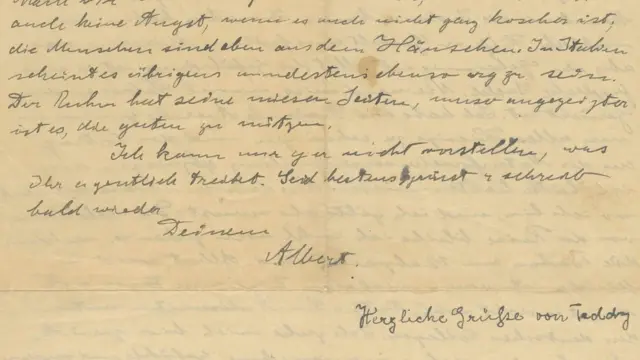 auch keine Angst, wenn es auch nicht ganz koscher ist,
die Menschen sind eben aus dem Häuschen. In Italien
scheint es übrigens mindestens ebenso arg zu sein.
Der Ruhm hat seine miesen Seiten, umso angezeigter
ist es, die guten zu nützen.
Ich kann mir gar nicht vorstellen, was
Ihr eigentlich treibt. Seid bestens gegrüsst u schreib
bald wieder
Deinem
Albert.
Herzliche Grüße von Teddy